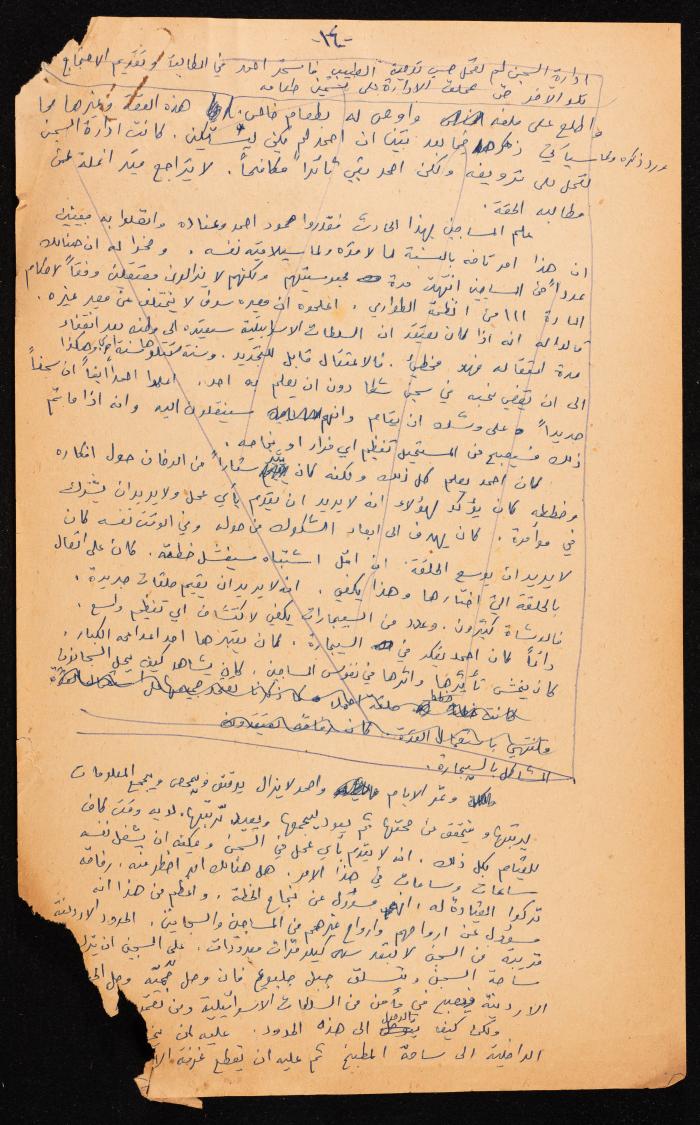 -١٤-
ادارة السجن لم تعمل حسب توصية الطبيب فاستمر احمد في المطالبة وتقديم الاحتجاج
تلو الآخر حتى عملت الادارة على تحسين طعامه
واطلع على ملفه واوصى له بطعام خاص. هذه القصة وغيرها مما
ورد ذكره ومما سيأتي ذكره فيما بعد تبين ان احمد لم يكن ليستكين. كانت ادارة السجن
تعمل على ترويضه ولكن احمد بقي ثائراً مكافحاً. لا يتراجع قيد انملة عن
مطالبه الحقة.
علم المساجين بهذا الحادث فقدروا صمود احمد وعناده واتصلوا به مبينين
ان هذا امر تافه بالنسبة لما لاقوه ولما سيلاقيه نفسه. وضحوا له ان هنالك
عدداً من المساجين انتهت مدة محكوميتهم ولكنهم لا يزالون معتقلين وفقاً لاحكام
المادة ١١١ من انظمة الطوارئ. اعلموه ان مصيره سوف لا يختلف عن مصير غيره.
قالوا له انه اذا كان يعتقد ان السلطات الاسرائيلية ستعيده الى وطنه بعد انقضاء
مدة اعتقاله فهو مخطئ. فالاعتقال قابل للتجديد. وسنة تتلوها سنة اخرى وهكذا
الى ان يقضي نحبه في سجن شطا دون ان يعلم به احد. اعلموا احمد ايضاً ان سجناً
جديداً على وشك ان يقام وانهم سينقلون اليه وانه اذا ما تم
ذلك فسيصبح من المستحيل تنظيم اي فرار او نجاحه.
كان احمد يعلم كل ذلك ولكنه كان ينثر ستاراً من الدخان حول افكاره
وخططه كان يؤكد لهؤلاء انه لا يريد ان يقوم بأي عمل ولا يريد ان يشترك
في مؤامرة. كان يهدف الى ابعاد الشكوك من حوله وفي الوقت نفسه كان
لا يريد ان يوسع الحلقة. ان اقل اشتباه سيفشل خطته. كان على اتصال
بالحلقة التي اختارها وهذا يكفي. انه لا يريد ان يقيم حلقات جديدة.
فالوشاة كثيرون. وعدد من السيجارات يكفي لاكتشاف اي تنظيم واسع.
دائماً كان احمد يفكر في السيجارة. كان يعتبرها احد اعدائه الكبار.
كان يخشى تأثيرها واثرها في نفوس المساجين. كان يشاهد كيف يحل السجانون
المشاكل بالسيجارة.
وتمر الايام واحمد لا يزال يدقق ويمحص ويجمع المعلومات
ليدققها ويتحقق من صحتها ثم يعود ليجمعها ويعيد ترتيبها. لديه وقت كاف
للقيام بكل ذلك. انه لا يقوم بأي عمل في السجن ويمكنه ان يشغل نفسه
ساعات وساعات في هذا الامر. هل هنالك امر اخطر منه. رفاقه
تركوا القيادة له. انه مسؤول عن نجاح الخطة. واعظم من هذا انه
مسؤول عن ارواحهم وارواح غيرهم من المساجين والسجانين. الحدود الاردنية
قريبة من السجن لا تبعد سوى كيلومترات معدودات. على السجين ان يترك
ساحة السجن ويتسلق جبل جلبوع فان وصل قمته وصل
الاردنية فيصبح في مأمن من السلطات الاسرائيلية ومن
ولكن كيف بالوصول الى هذه الحدود. عليه ان
الداخلية الى ساحة المطبخ ثم عليه ان يقطع غرفة